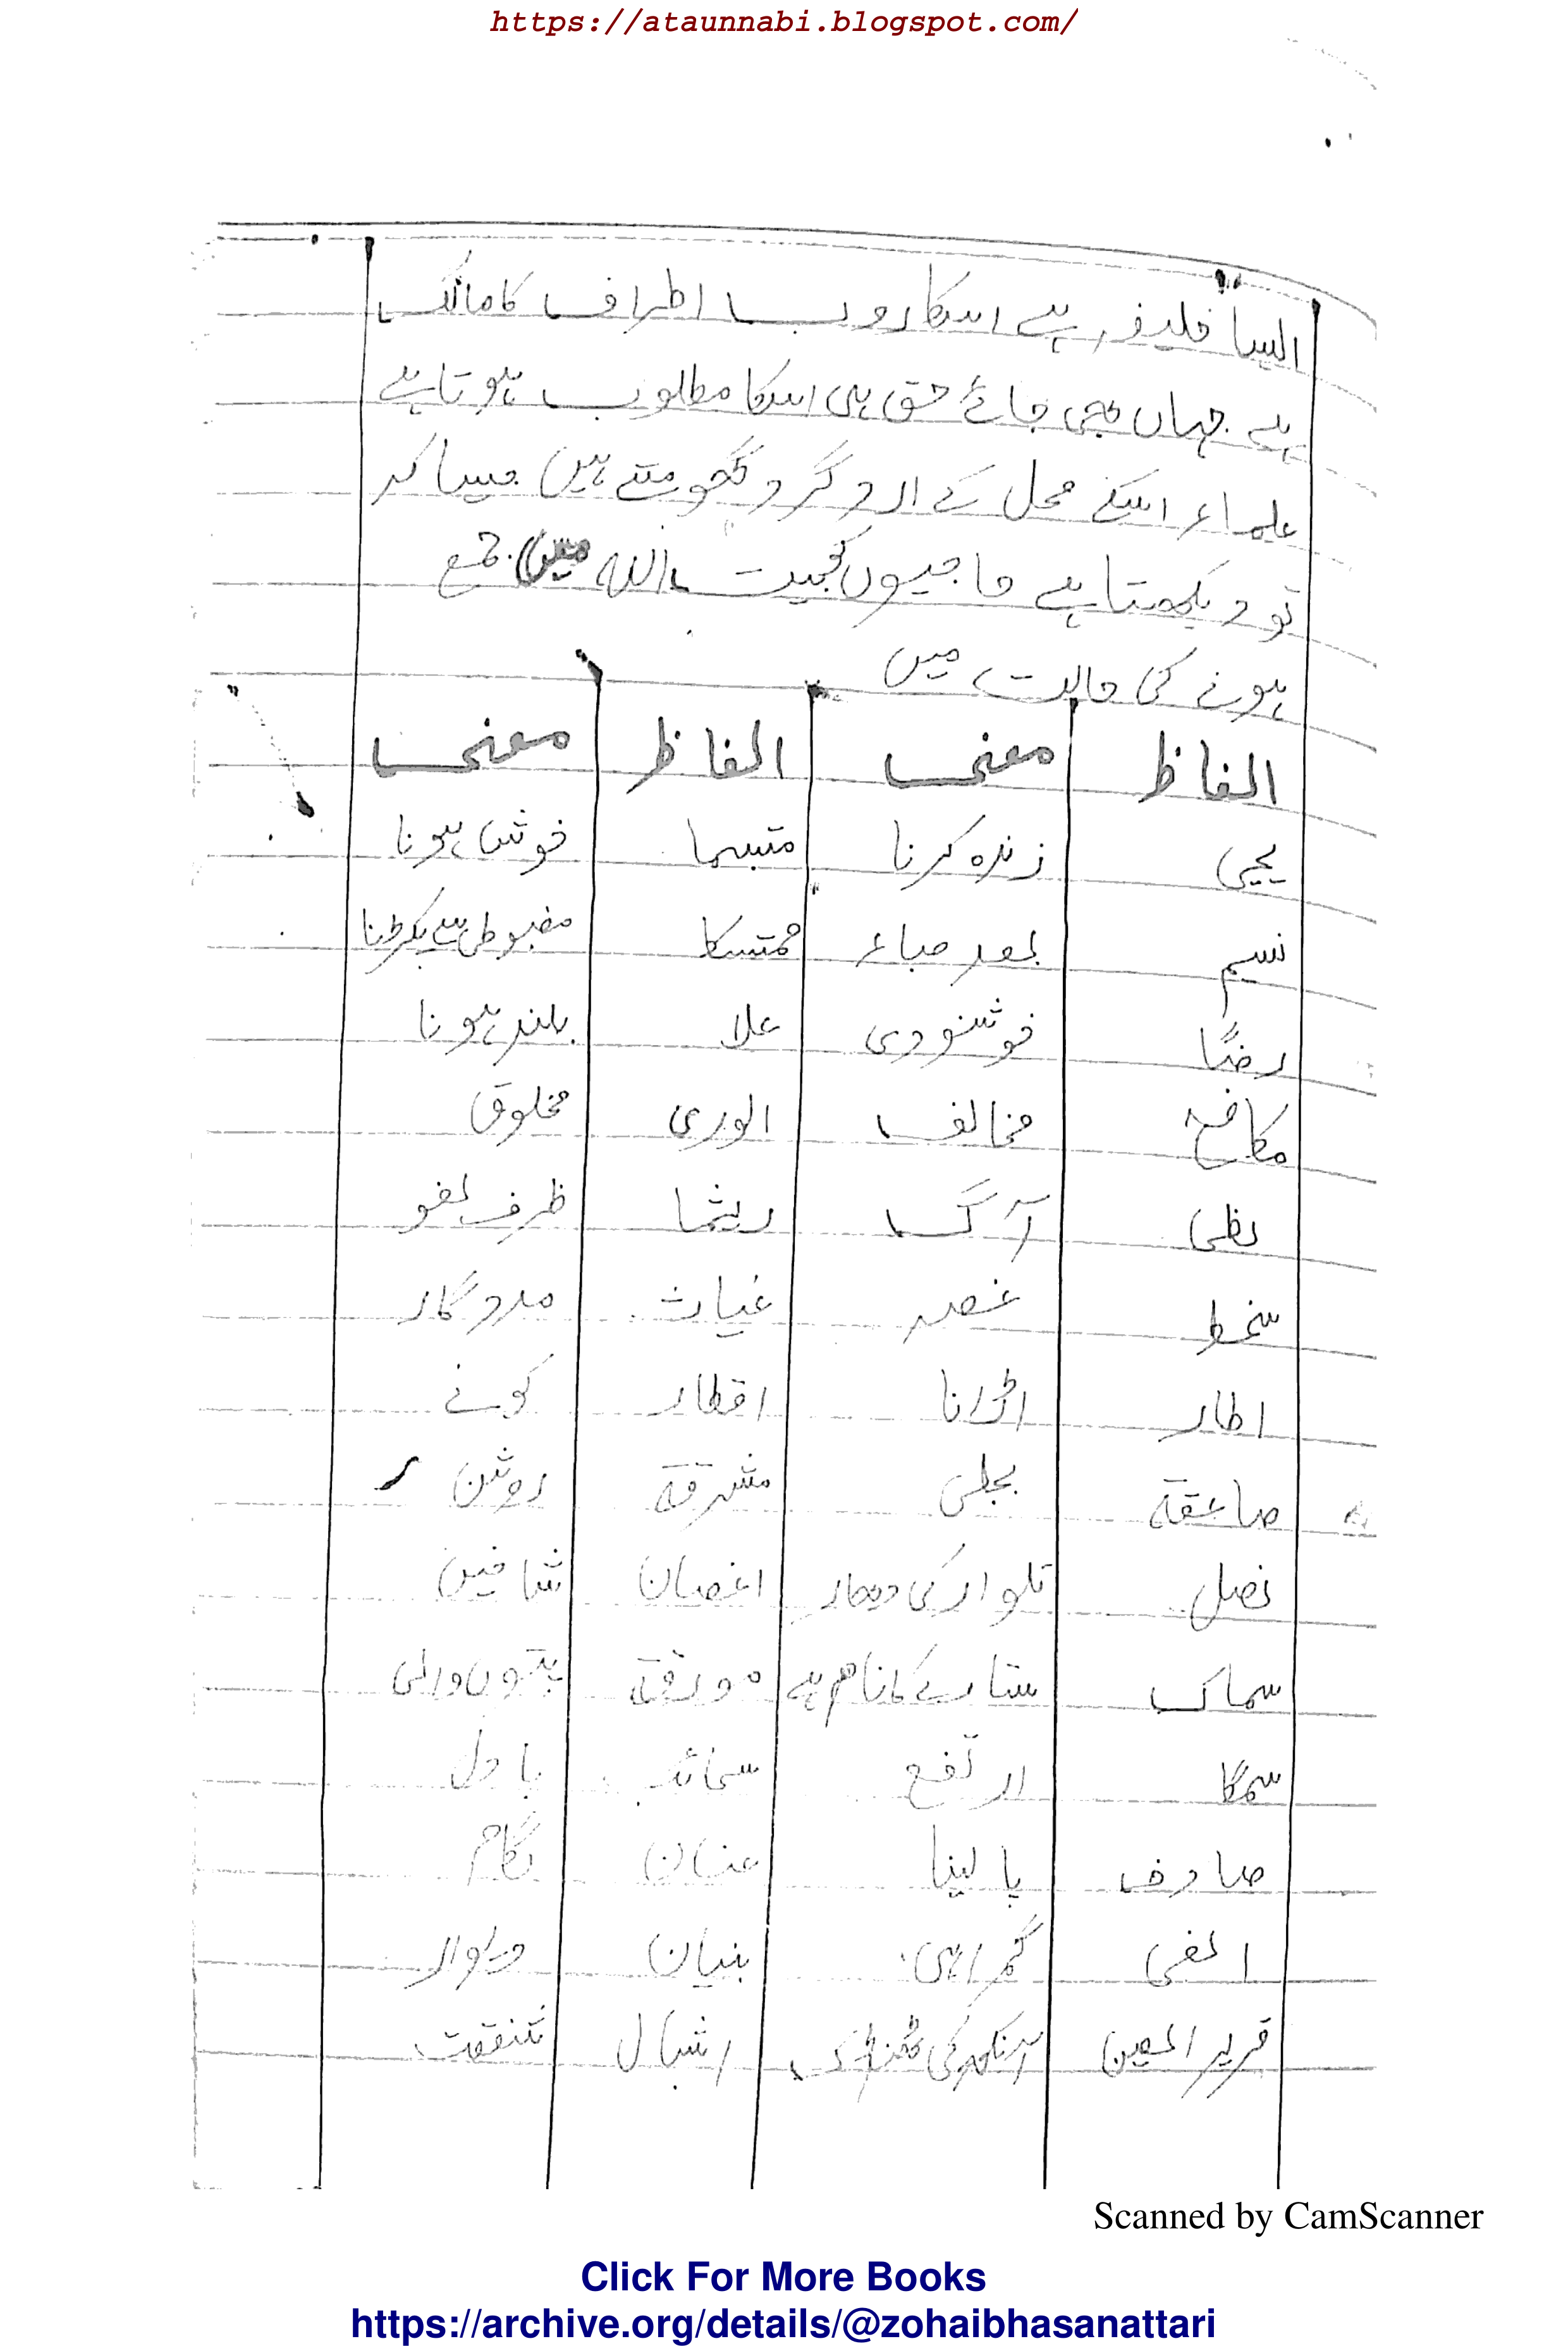 https://ataunnabi.blogspot.com/
ایسا خلیفہ ہے اسکا رعب اطراف کا مالک
ہے جہاں بھی جائے حق ہی اسکا مطلوب ہوتا ہے
علماء اسکے محل کے ارد گرد گھومتے ہیں جیسا کہ
تو دیکھتا ہے حاجیوں بیت اللہ میں جمع
ہونے کی حالت میں
الفاظ معنی الفاظ معنی
یحیی زندہ کرنا متبسما خوش ہونا
نسیم بعد صباء متمسکا مضبوطی سے پکڑنا
رضًا خوشنودی علا بلند ہونا
مکافح مخالف الوری مخلوق
لظی آگ ریثما ظرف لغو
سخط غصہ غیاث مددگار
اطار اڑانا اقطار کونے
صاعقۃ بجلی مشرقۃ روشن
نصل تلوار کی دھار اغصان شاخیں
سماک ستارے کا نام ہے مورقۃ پتوں والی
سمکا ارتفع سحائب بادل
صادف پا لینا عنان لگام
الغی گمراہی بنیان دیوار
قریر العین آنکھ کی ٹھنڈک اشبال شفقت
Scanned by CamScanner
Click For More Books
https://archive.org/details/@zohaibhasanattari